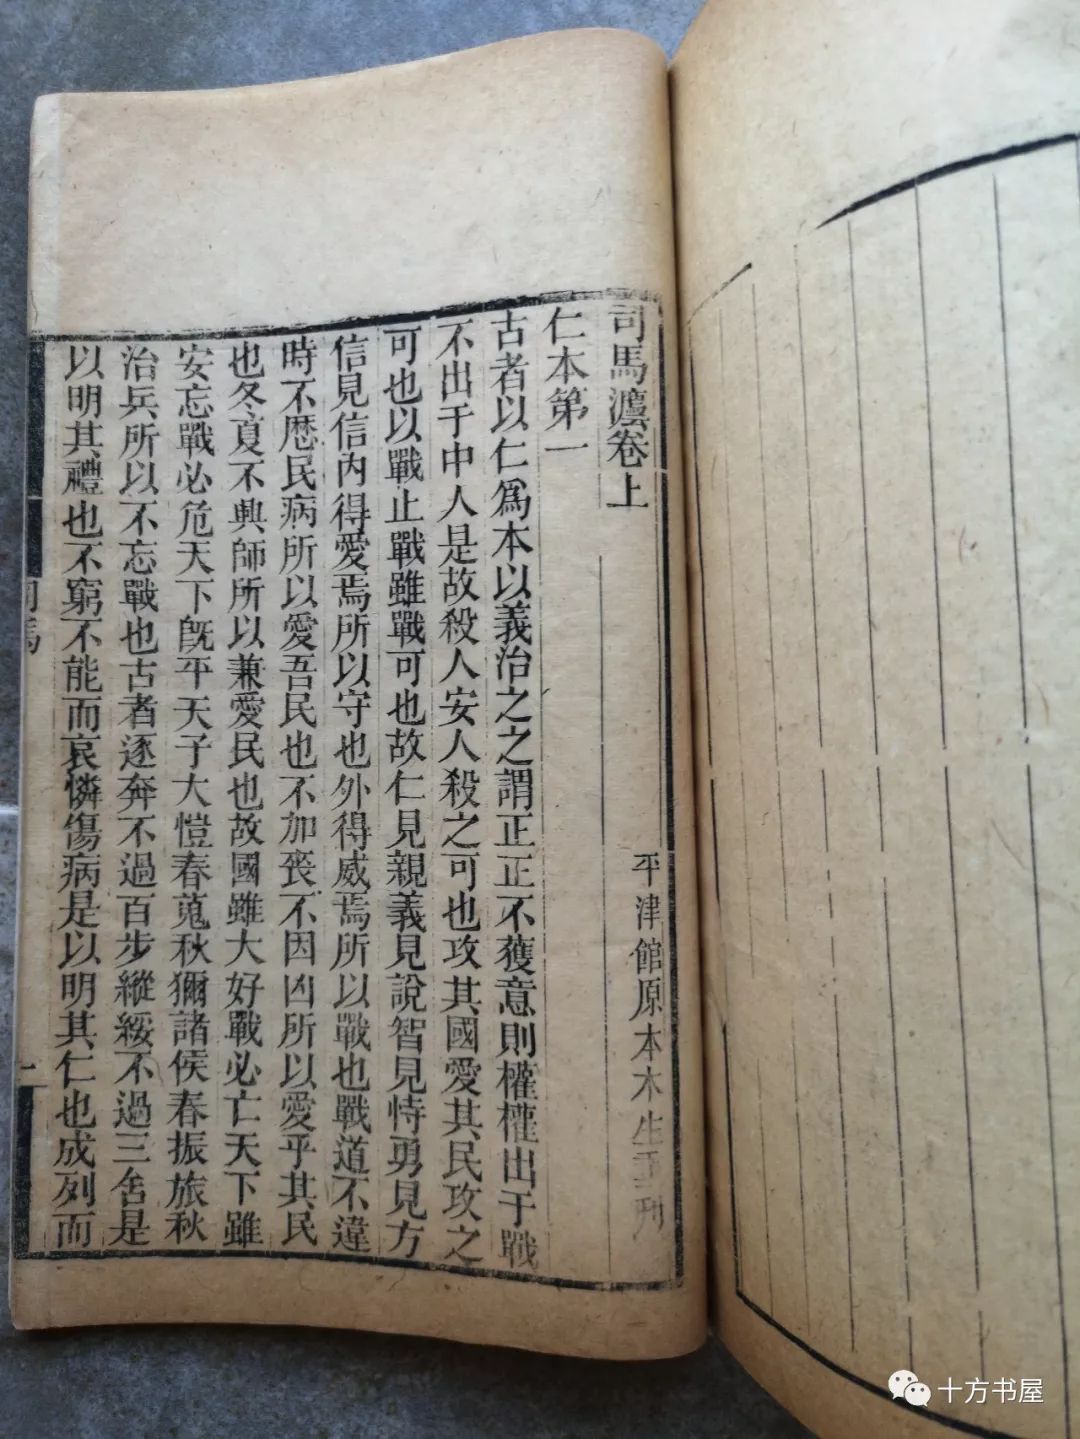 司馬灋卷上
平津館原本木生重刊
仁本第一
古者以仁爲本以義治之之謂正正不獲意則權權出于戰
不出于中人是故殺人安人殺之可也攻其國愛其民攻之
可也以戰止戰雖戰可也故仁見親義見說智見恃勇見方
信見信內得愛焉所以守也外得威焉所以戰也戰道不違
時不歷民病所以愛吾民也不加喪不因凶所以愛乎其民
也冬夏不興師所以兼愛民也故國雖大好戰必亡天下雖
安忘戰必危天下旣平天子大愷春蒐秋獮諸侯春振旅秋
治兵所以不忘戰也古者逐奔不過百步縱綏不過三舍是
以明其禮也不窮不能而哀憐傷病是以明其仁也成列而
司馬
一
十方书屋